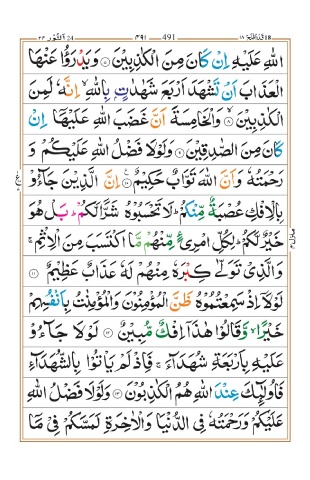 النّور ٢٤ ٤٩١ 491 قد افلح ١٨
اللهِ عَلَيْهِ اِنْ كَانَ مِنَ الْكٰذِبِيْنَ ۝٧ وَيَدْرَؤُا عَنْهَا
الْعَذَابَ اَنْ تَشْهَدَ اَرْبَعَ شَهٰدٰتٍۭ بِاللهِ ۙ اِنَّهٗ لَمِنَ
الْكٰذِبِيْنَ ۝٨ وَالْخَامِسَةَ اَنَّ غَضَبَ اللهِ عَلَيْهَاۤ اِنْ
كَانَ مِنَ الصّٰدِقِيْنَ ۝٩ وَلَوْلَا فَضْلُ اللهِ عَلَيْكُمْ وَ
رَحْمَتُهٗ وَاَنَّ اللهَ تَوَّابٌ حَكِيْمٌ ۝١٠ اِنَّ الَّذِيْنَ جَآءُوْ
بِالْاِفْكِ عُصْبَةٌ مِّنْكُمْ ؕ لَا تَحْسَبُوْهُ شَرًّا لَّكُمْ ؕ بَلْ هُوَ
خَيْرٌ لَّكُمْ ؕ لِكُلِّ امْرِئٍ مِّنْهُمْ مَّا اكْتَسَبَ مِنَ الْاِثْمِ ۚ
وَالَّذِيْ تَوَلّٰى كِبْرَهٗ مِنْهُمْ لَهٗ عَذَابٌ عَظِيْمٌ ۝١١
لَوْلَاۤ اِذْ سَمِعْتُمُوْهُ ظَنَّ الْمُؤْمِنُوْنَ وَالْمُؤْمِنٰتُ بِاَنْفُسِهِمْ
خَيْرًا ۙ وَّقَالُوْا هٰذَاۤ اِفْكٌ مُّبِيْنٌ ۝١٢ لَوْلَا جَآءُوْ
عَلَيْهِ بِاَرْبَعَةِ شُهَدَآءَ ۚ فَاِذْ لَمْ يَاْتُوْا بِالشُّهَدَآءِ
فَاُولٰٓئِكَ عِنْدَ اللهِ هُمُ الْكٰذِبُوْنَ ۝١٣ وَلَوْلَا فَضْلُ اللهِ
عَلَيْكُمْ وَرَحْمَتُهٗ فِي الدُّنْيَا وَالْاٰخِرَةِ لَمَسَّكُمْ فِيْ مَاۤ